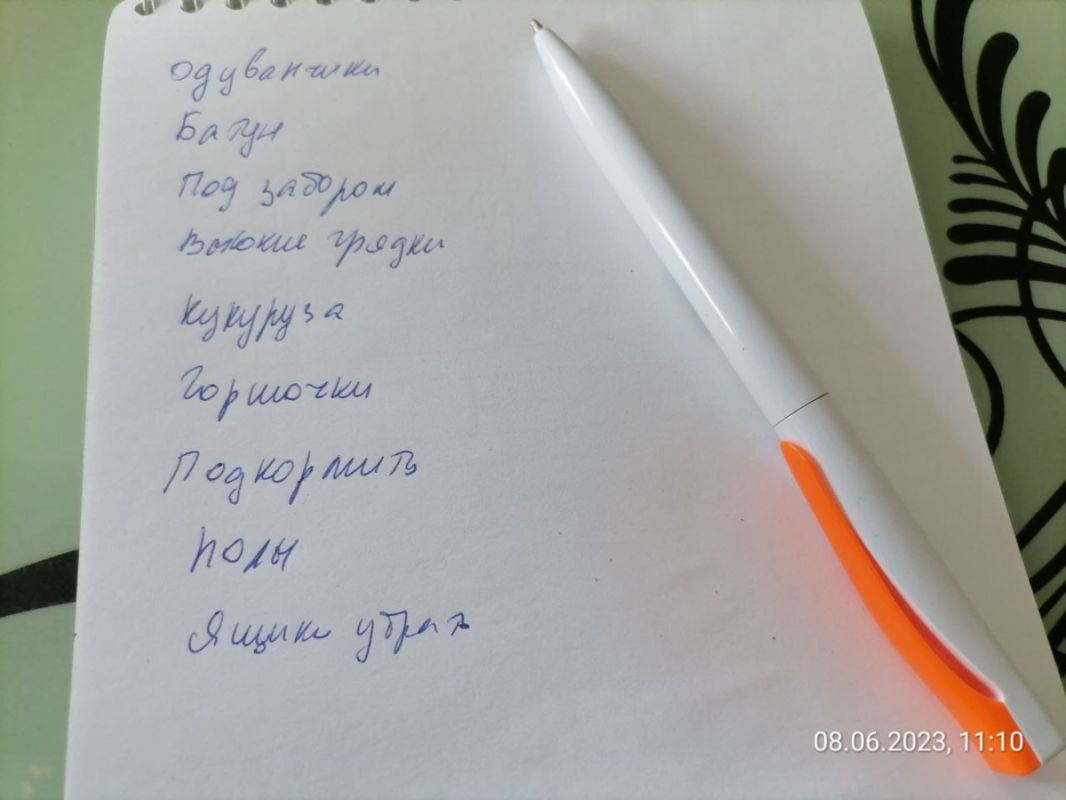 одуванчики
Батун
Под забором
Высокие грядки
Кукуруза
Горшочки
Подкормить
Полы
Ящики убрать
08.06.2023, 11:10